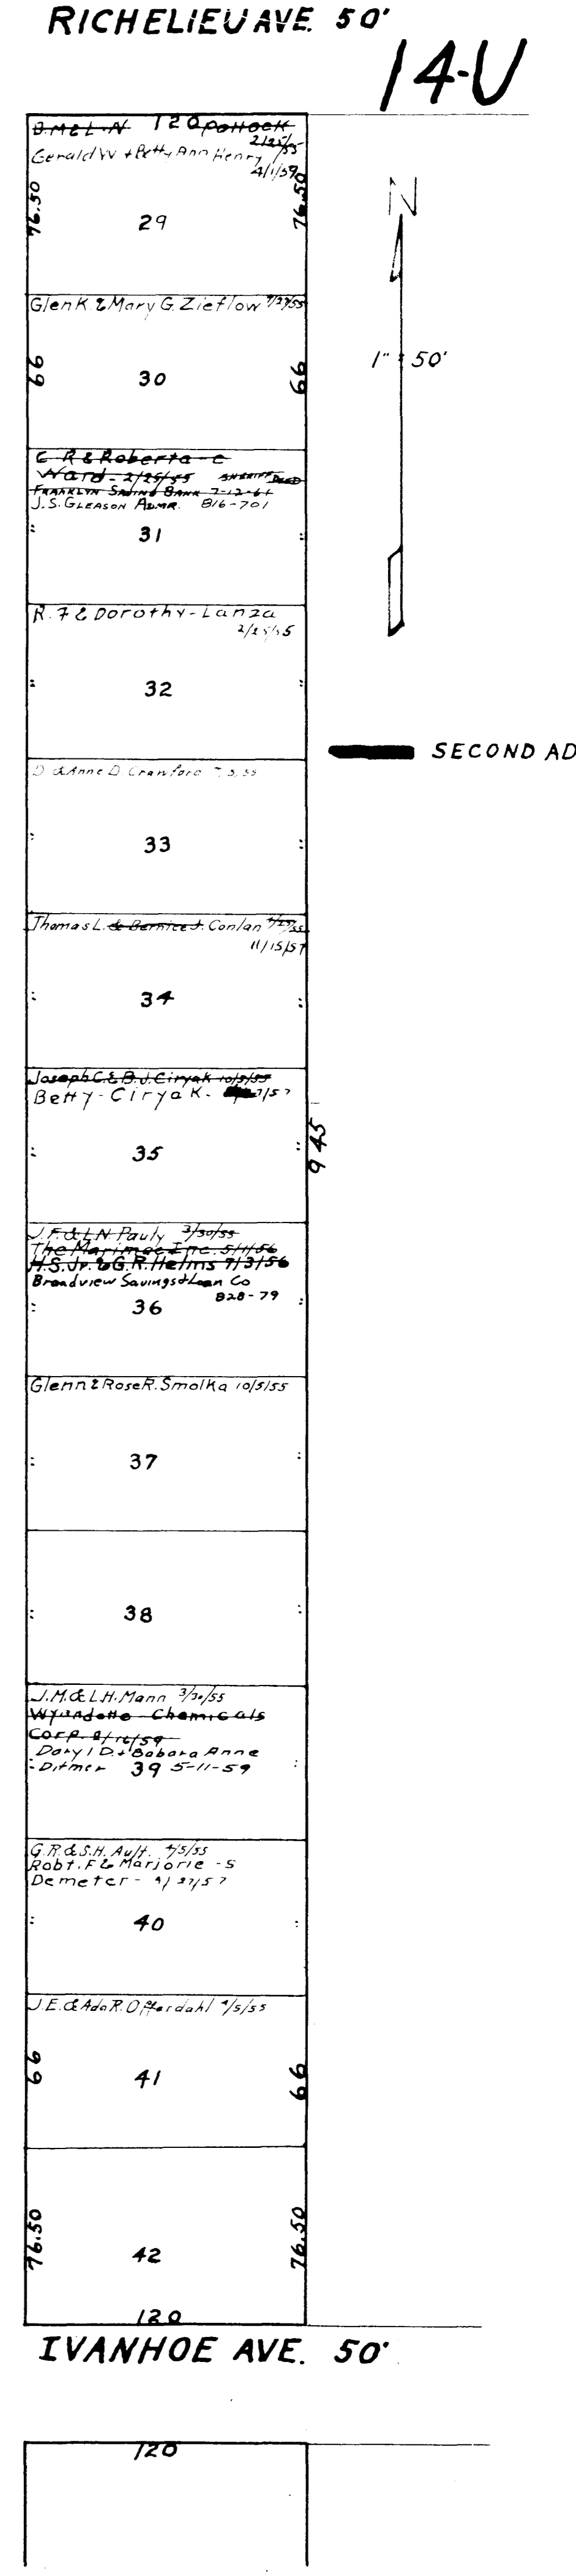 RICHELIEU AVE. 50'
14-U
D.M & L.N 120 Pollock
2/25/55
Gerald W + Betty Ann Henry
4/1/59
76.50
76.50
29
N
Glen K. & Mary G. Zieflow 9/27/55
66
66
30
1" = 50'
C R & Roberta C
Ward - 2/25/55 SHERIFF DEED
FRANKLYN SAVING BANK 7-12-61
J.S. GLEASON ADMR. 816-701
"
"
31
R. F & Dorothy - Lanza
2/25/55
"
"
32
SECOND AD
D. & Anne D. Crawford
"
"
33
Thomas L. & Bernice J. Conlan 9/27/55
11/15/57
"
"
34
Joseph C. & B.J. Ciryak 10/5/55
Betty - Ciryak - 7/57
"
"
35
945
J.F. & L.N. Pauly 3/30/55
The Marimac Inc. 5/11/56
H.S. Jr. & G.R. Helms 7/3/56
Broadview Savings & Loan Co
828-79
"
36
Glenn & Rose R. Smolka 10/5/55
"
"
37
"
"
38
J.M. & L.H. Mann 3/30/55
Wyandotte Chemicals
Corp.
Daryl D. + Babara Anne
" Ditmer 39 5-11-59
"
G.R. & S.H. Ault. 4/5/55
Robt. F & Marjorie - S
Demeter - 9/27/57
"
"
40
J.E. & Ada R. Offerdahl 4/5/55
66
66
41
76.50
76.50
42
120
IVANHOE AVE. 50'
120